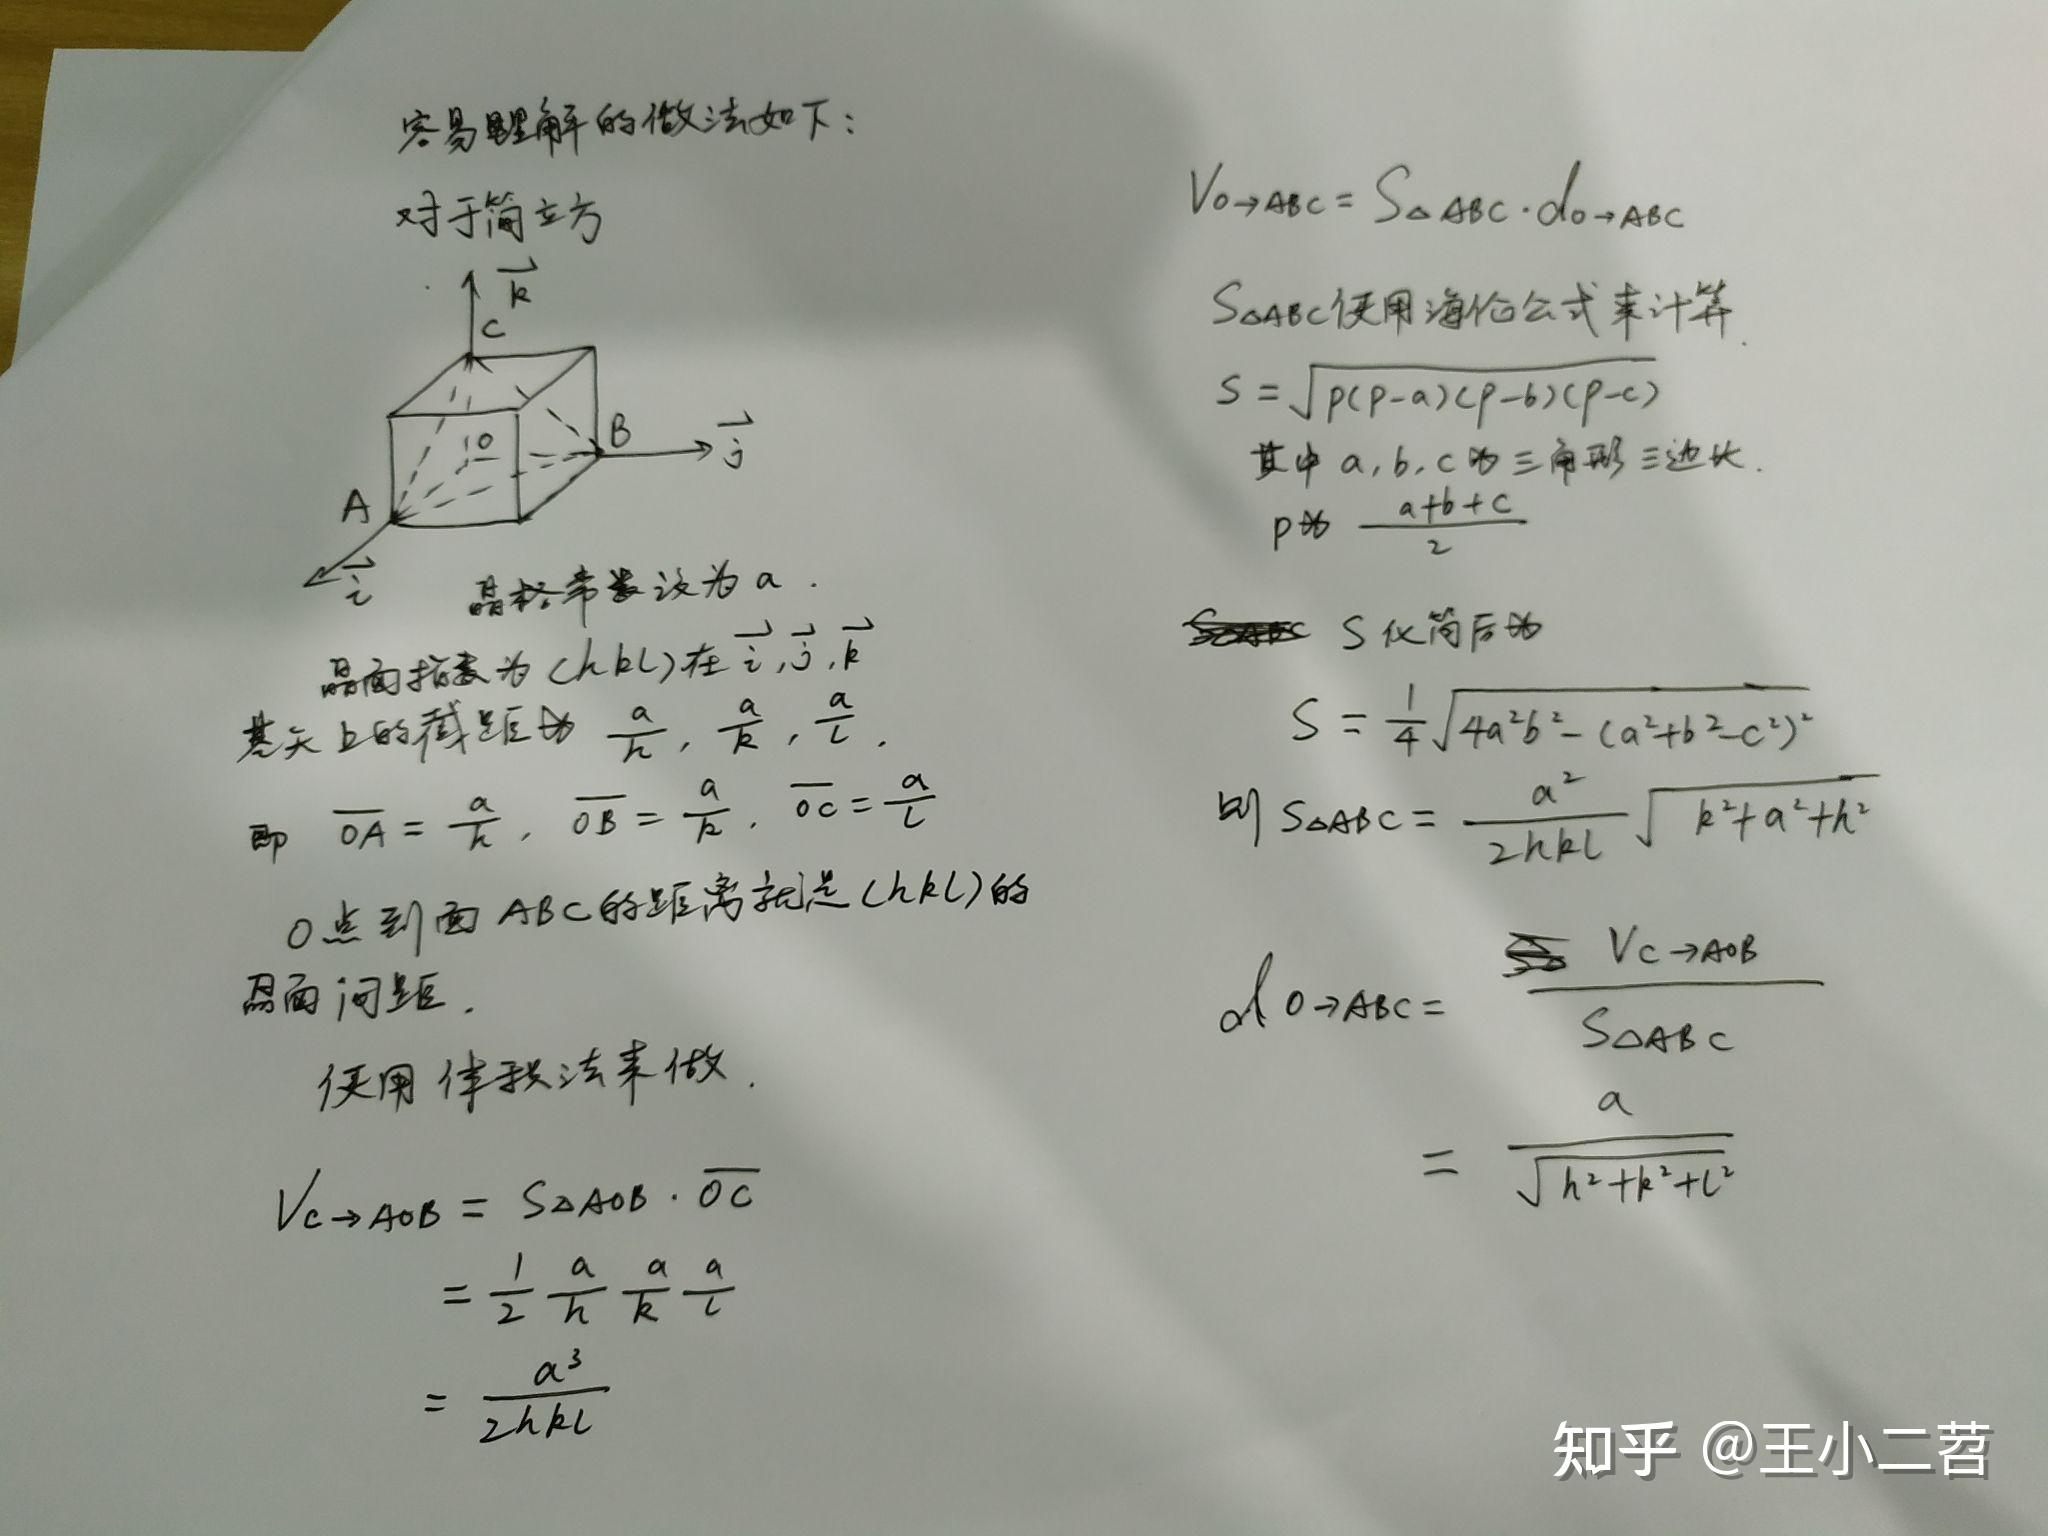 容易理解的做法如下：
对于简立方
k
C
O
B
j
A
i
晶格常数设为a.
晶面指数为(hkl)在 i, j, k
基矢上的截距为 a/h, a/k, a/l.
即 OA = a/h, OB = a/k, OC = a/l
O点到面ABC的距离就是(hkl)的
晶面间距.
使用体积法来做.
V_{C→AOB} = S_{△AOB}·OC
= 1/2 a/h a/k a/l
= a³/2hkl
V_{O→ABC} = S_{△ABC}·d_{O→ABC}
S_{△ABC}使用海伦公式来计算.
S = √(p(p-a)(p-b)(p-c))
其中 a, b, c 为三角形三边长.
p为 (a+b+c)/2
S化简后为
S = 1/4 √(4a²b²-(a²+b²-c²)²)
则 S_{△ABC} = a²/2hkl √(k²+a²+h²)
d_{O→ABC} = V_{C→AOB}/S_{△ABC}
= a/√(h²+k²+l²)
知乎 @王小二苕